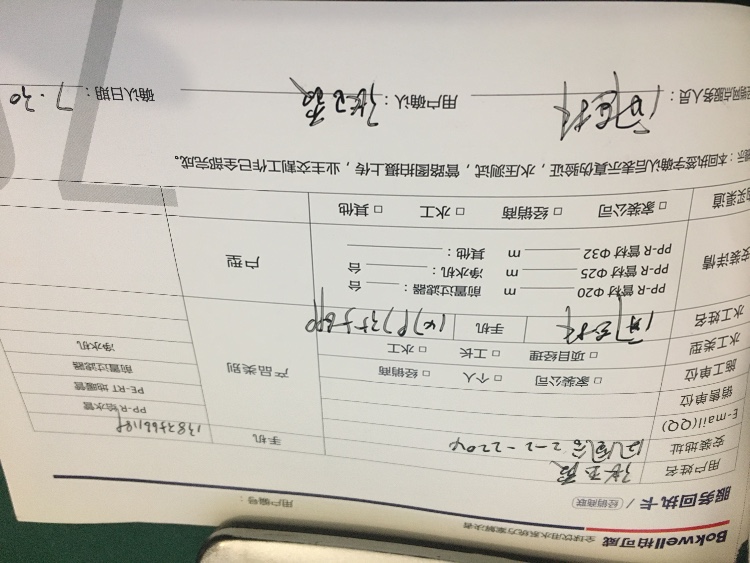 Bokwell柏可威 全球饮用水系统方案解决者
服务回执卡 / 经销商联 用户编号：
用户姓名
安装地址 2-2-2204 手机
E-mail(QQ)
销售单位
施工单位 □ 家装公司 □ 个人 □ 经销商
水工类型 □ 项目经理 □ 工长 □ 水工
水工姓名 手机
产品类别 PP-R 给水管
PE-RT 地暖管
前置过滤器
净水机
安装详情 PP-R 管材 Φ20 m 前置过滤器： 台
PP-R 管材 Φ25 m 净水机： 台
PP-R 管材 Φ32 m 其他：
户型
购买渠道 □ 家装公司 □ 经销商 □ 水工 □ 其他
提示：本回执签字确认后表示真伪验证，水压测试，管路图拍摄上传，业主交割工作已全部完成。
经销网点服务人员： 用户确认： 确认日期： 7.30